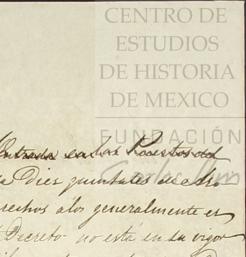 CENTRO DE
ESTUDIOS
DE HISTORIA
DE MEXICO
FUNDACIÓN
Carlos Slim
Entrada en los Puertos del
Diez quintales de
derechos a los generalmente es
Decreto no está en su vigor